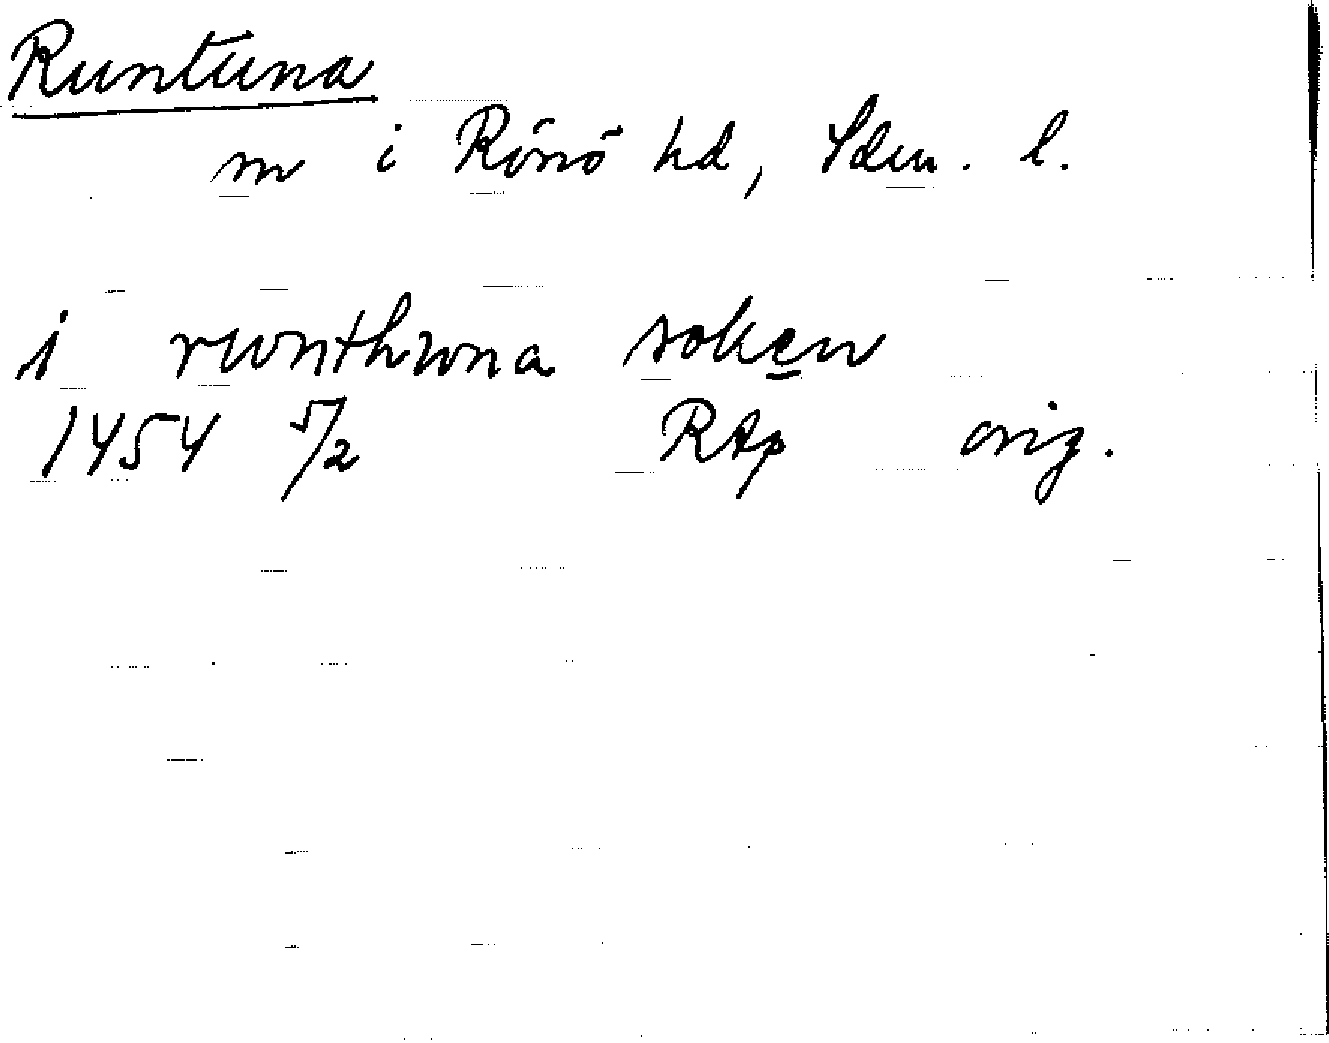 Runtuna
sn i Rönö hd, Södm. l.
i rwnthwna soken
1454 5/2 RAp orig.